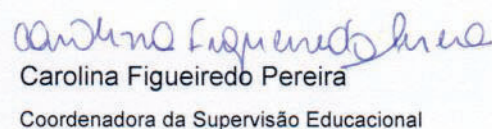 Carolina Figueiredo Pereira
Carolina Figueiredo Pereira
Coordenadora da Supervisão Educacional